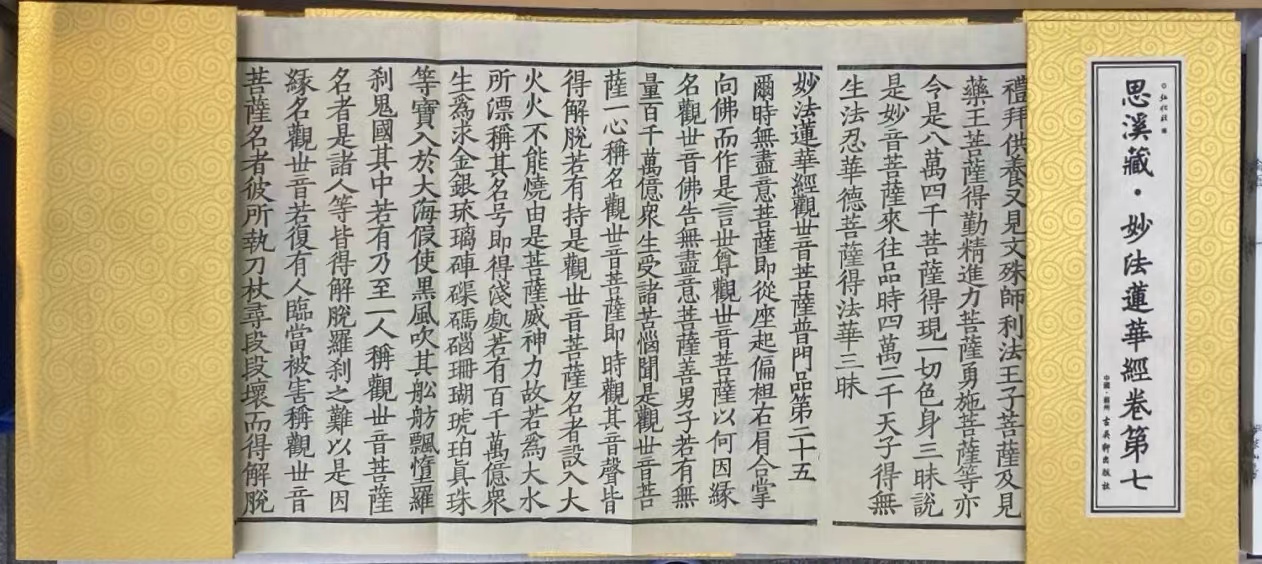 思溪藏·妙法蓮華經卷第七
中國·蘇州 古吳軒出版社
禮拜供養又見文殊師利法王子菩薩及見
藥王菩薩得勤精進力菩薩勇施菩薩等亦
令是八萬四千菩薩得現一切色身三昧說
是妙音菩薩來往品時四萬二千天子得無
生法忍華德菩薩得法華三昧
妙法蓮華經觀世音菩薩普門品第二十五
爾時無盡意菩薩即從座起偏袒右肩合掌
向佛而作是言世尊觀世音菩薩以何因緣
名觀世音佛告無盡意菩薩善男子若有無
量百千萬億衆生受諸苦惱聞是觀世音菩
薩一心稱名觀世音菩薩即時觀其音聲皆
得解脫若有持是觀世音菩薩名者設入大
火火不能燒由是菩薩威神力故若爲大水
所漂稱其名号即得淺處若有百千萬億衆
生爲求金銀琉璃硨磲碼碯珊瑚琥珀眞珠
等寶入於大海假使黑風吹其舩舫飄墮羅
剎鬼國其中若有乃至一人稱觀世音菩薩
名者是諸人等皆得解脫羅剎之難以是因
緣名觀世音若復有人臨當被害稱觀世音
菩薩名者彼所執刀杖尋段段壞而得解脫